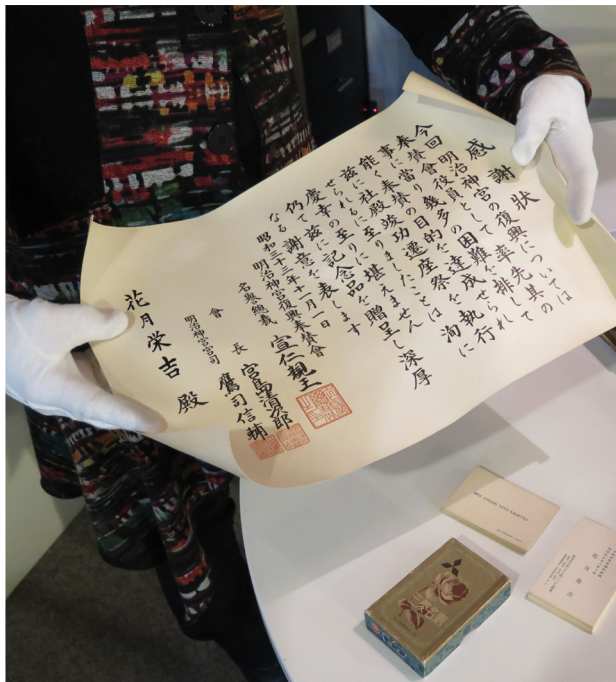 感謝狀
今回明治神宮の復興については
奉賛會役員として率先其の
事に當り幾多の困難を排して
能く奉賛の目的を達成せられ
茲に社殿の竣功遷座祭を執行
せられるに至りましたことは洵に
慶幸の至りに堪えません
仍て茲に記念品を贈呈し深厚
なる謝意を表します
昭和三十三年十一月一日
明治神宮復興奉賛會
名誉總裁 宣仁親王
會長 宮島清次郎
明治神宮宮司 鷹司信輔
花月栄吉殿